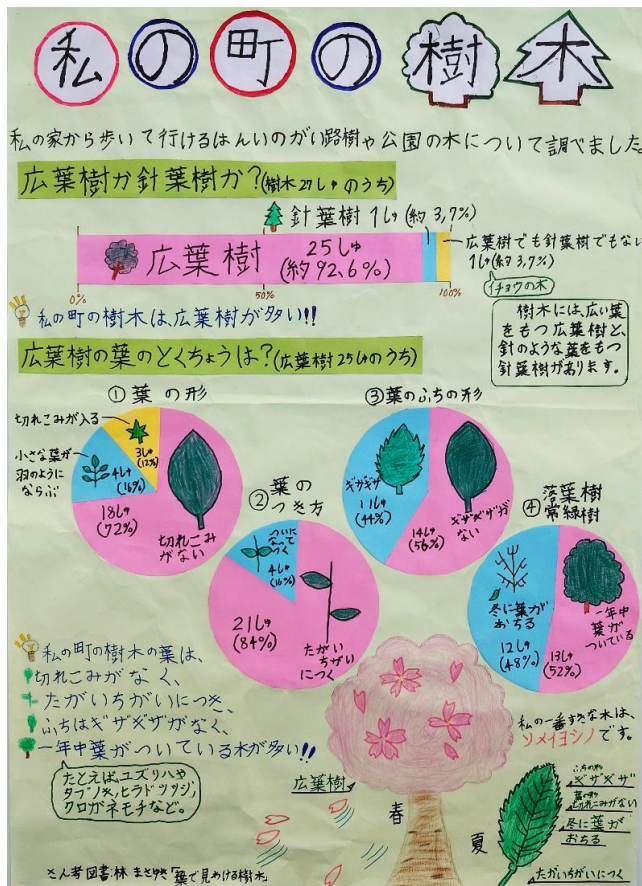 私の町の樹木
私の家から歩いて行けるはんいのがい路樹や公園の木について調べました。
広葉樹か針葉樹か?(樹木27しゅのうち)
針葉樹 1しゅ(約3,7%)
広葉樹
25しゅ
(約92,6%)
広葉樹でも針葉樹でもない
1しゅ(約3,7%)
イチョウの木
0%
50%
100%
私の町の樹木は、広葉樹が多い!!
樹木には、広い葉
をもつ広葉樹と、
針のような葉をもつ
針葉樹があります。
広葉樹の葉のとくちょうは?(広葉樹25しゅのうち)
①葉の形
切れこみが入る
3しゅ
(12%)
小さな葉が
羽のように
ならぶ
4しゅ
(16%)
18しゅ
(72%)
切れこみ
がない
②葉の
つき方
ついに
なって
つく
4しゅ
(16%)
21しゅ
(84%)
たがい
ちがい
につく
③葉のふちの形
ギザギザ
11しゅ
(44%)
14しゅ
(56%)
ギザギザが
ない
④落葉樹
常緑樹
冬に葉が
おちる
12しゅ
(48%)
一年中
葉が
ついている
13しゅ
(52%)
私の町の樹木の葉は、
切れこみがなく、
たがいちがいにつき、
ふちはギザギザがなく、
一年中葉がついている木が多い!!
たとえば、ユズリハや
タブノキ,ヒラドツツジ,
クロガネモチなど。
私の一番すきな木は、
ソメイヨシノです。
広葉樹
春
夏
ふちの形
ギザギザ
葉の形
切れこみがない
冬に葉が
おちる
たがいちがいにつく
さん考図書:林 まさゆき「葉で見わける樹木」